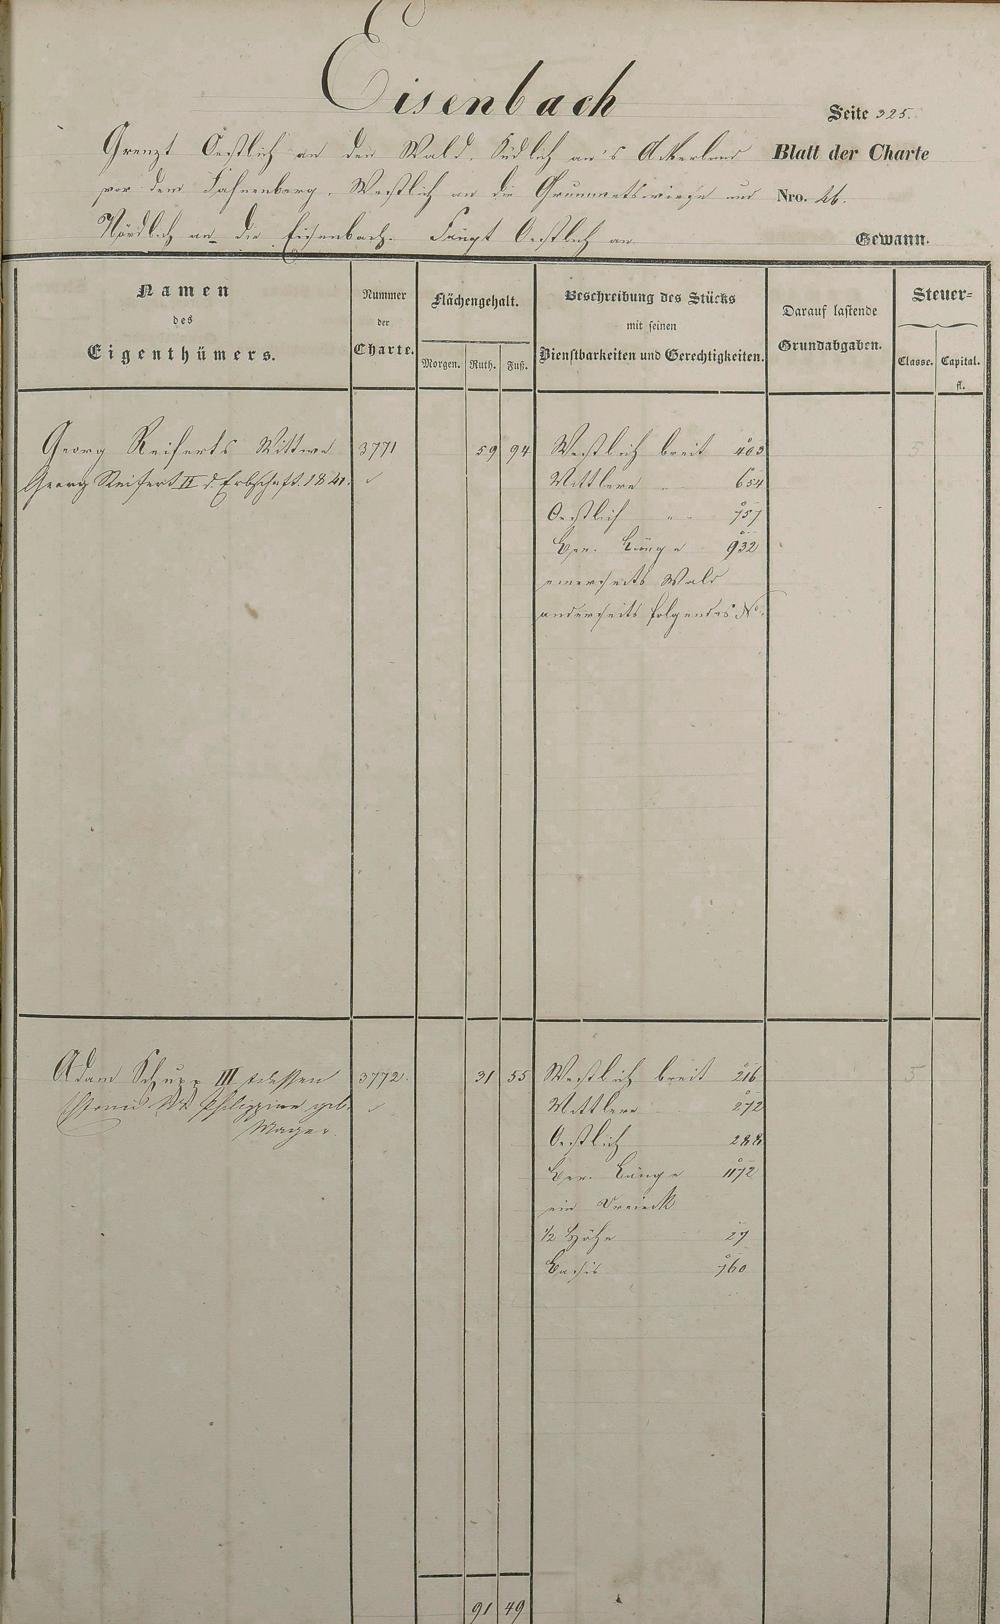 Eisenbach
Seite 325.
Grenzt Oestlich an den Wald. Südlich an's Ackerland
Blatt der Charte
vor dem Hahnenberg. Westlich an die Grummetswiese und
Nro. 26.
Nördlich an die Eisenbach. Fängt Oestlich an
Gewann.
Namen
des
Eigenthümers.
Nummer
der
Charte.
Flächengehalt.
Morgen. Ruth. Fuß.
Beschreibung des Stücks
mit seinen
Dienstbarkeiten und Gerechtigkeiten.
Darauf lastende
Grundabgaben.
Steuer=
Classe. Capital.
fl.
Georg Reiferts Wittwe 3771 59 94 Westlich breit 403 5
Georg Reifert II d. Erbschaft. 1841. Mittlere " 654
Oestlich " 757
Ger. Länge 932
einerseits Wald
anderseits folgendes No.
Adam Schupp III 3772. 31 55 Westlich breit 216 5
Philippine geb. Mittlere 272
Mayer. Oestlich 288
Ger. Länge 1172
ein Dreieck
½ Höhe 27
Basis 760
91 49